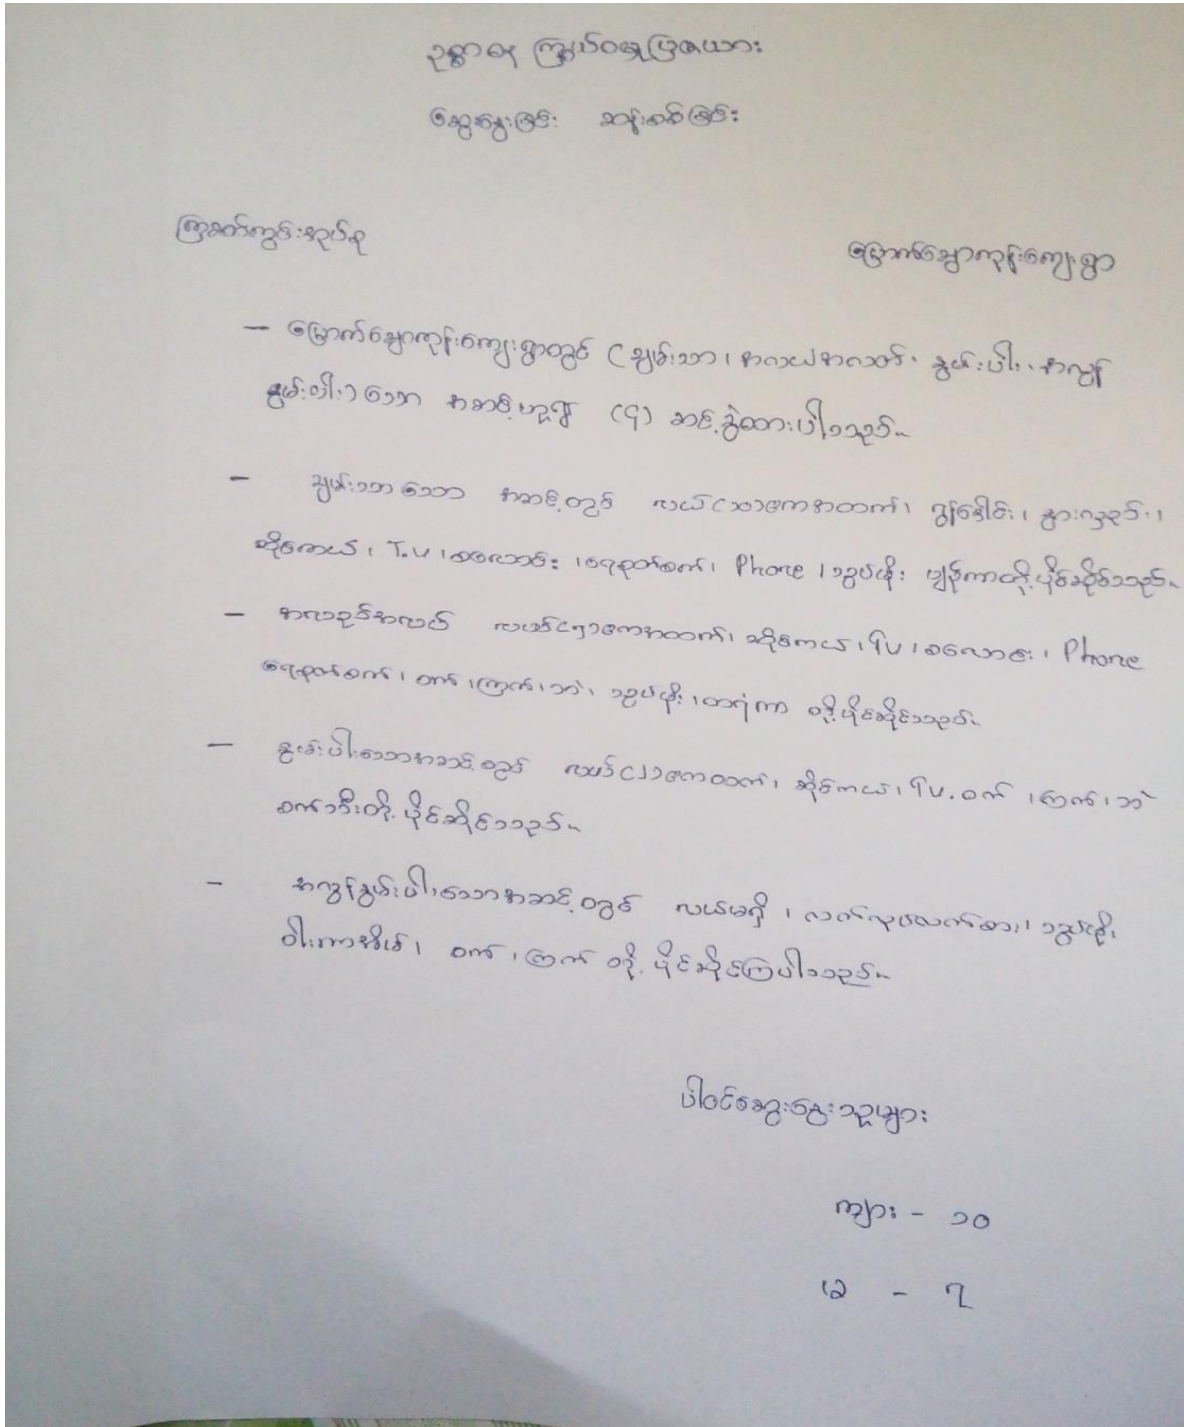 ဥစ္စာဓန ကြွယ်ဝမှုပြဇယား
ဆွေးနွေးခြင်း ဆန်းစစ်ခြင်း
ကြခတ်ကွင်းအုပ်စု
မြောက်ချောကုန်းကျေးရွာ
– မြောက်ချောကုန်းကျေးရွာတွင် (ချမ်းသာ၊ အလယ်အလတ်၊ နွမ်းပါး၊ အလွန်
နွမ်းပါး) သော အဆင့်ဟူ၍ (၄) ဆင့်ခွဲထားပါသည်။
– ချမ်းသာသော အဆင့်တွင် လယ်(၁၀)ဧကအထက်၊ ခြံခေါင်း၊ နွားလှည်း၊
ဆိုင်ကယ်၊ T.V ၊စလောင်း ၊ရေစုတ်စက်၊ Phone ၊သွပ်မိုး ပျဉ်ကာတို့ပိုင်ဆိုင်သည်။
– အလည်အလတ် လယ်(၅)ဧကအထက်၊ ဆိုင်ကယ်၊TV ၊စလောင်း၊ Phone
ရေစုတ်စက်၊ ဝက်၊ကြက်၊ဘဲ၊ သွပ်မိုး ၊ထရံကာ တို့ပိုင်ဆိုင်သည်။
– နွမ်းပါးသောအဆင့်တွင် လယ်(၂)ဧကထက်၊ ဆိုင်ကယ်၊TV. ဝက် ၊ကြက်၊ဘဲ
စက်ဘီးတို့ ပိုင်ဆိုင်သည်။
– အလွန်နွမ်းပါးသောအဆင့်တွင် လယ်မရှိ ၊ လက်လုပ်လက်စား၊ သွပ်မိုး
ဝါးကာအိမ်၊ ဝက် ၊ကြက် တို့ ပိုင်ဆိုင်ကြပါသည်။
ပါဝင်ဆွေးနွေးသူများ
ကျား – ၁၀
မ – ၇